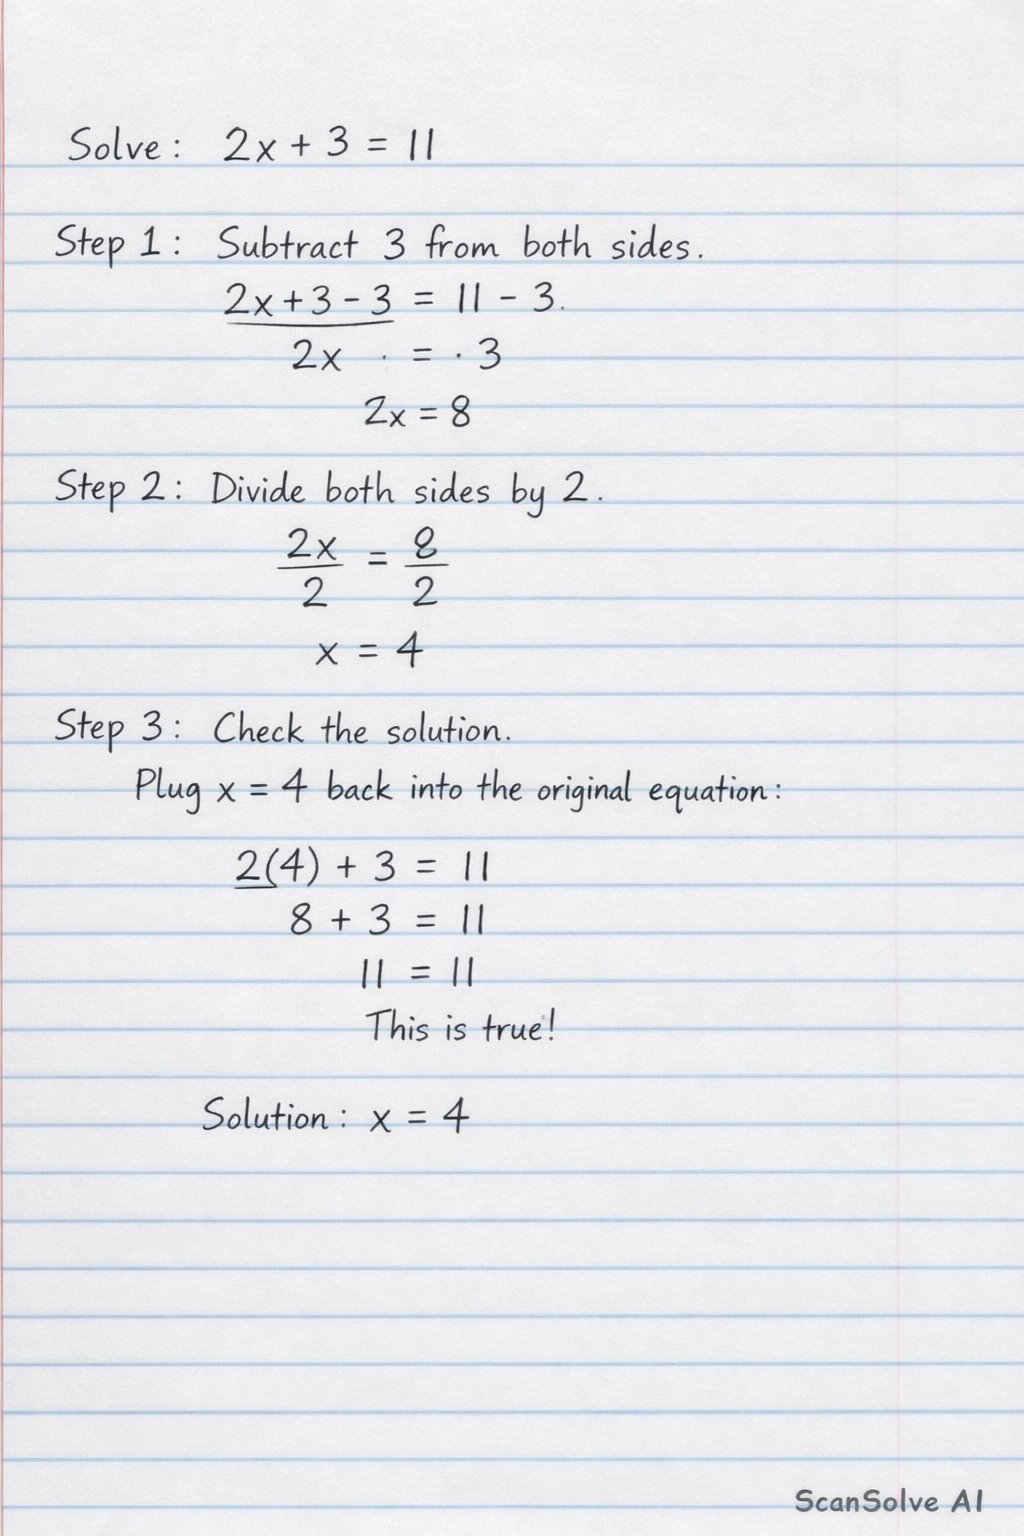 Solve: 2x + 3 = 11
Step 1: Subtract 3 from both sides.
2x + 3 - 3 = 11 - 3.
2x · = · 3
2x = 8
Step 2: Divide both sides by 2.
2x/2 = 8/2
x = 4
Step 3: Check the solution.
Plug x = 4 back into the original equation:
2(4) + 3 = 11
8 + 3 = 11
11 = 11
This is true!
Solution: x = 4
ScanSolve AI